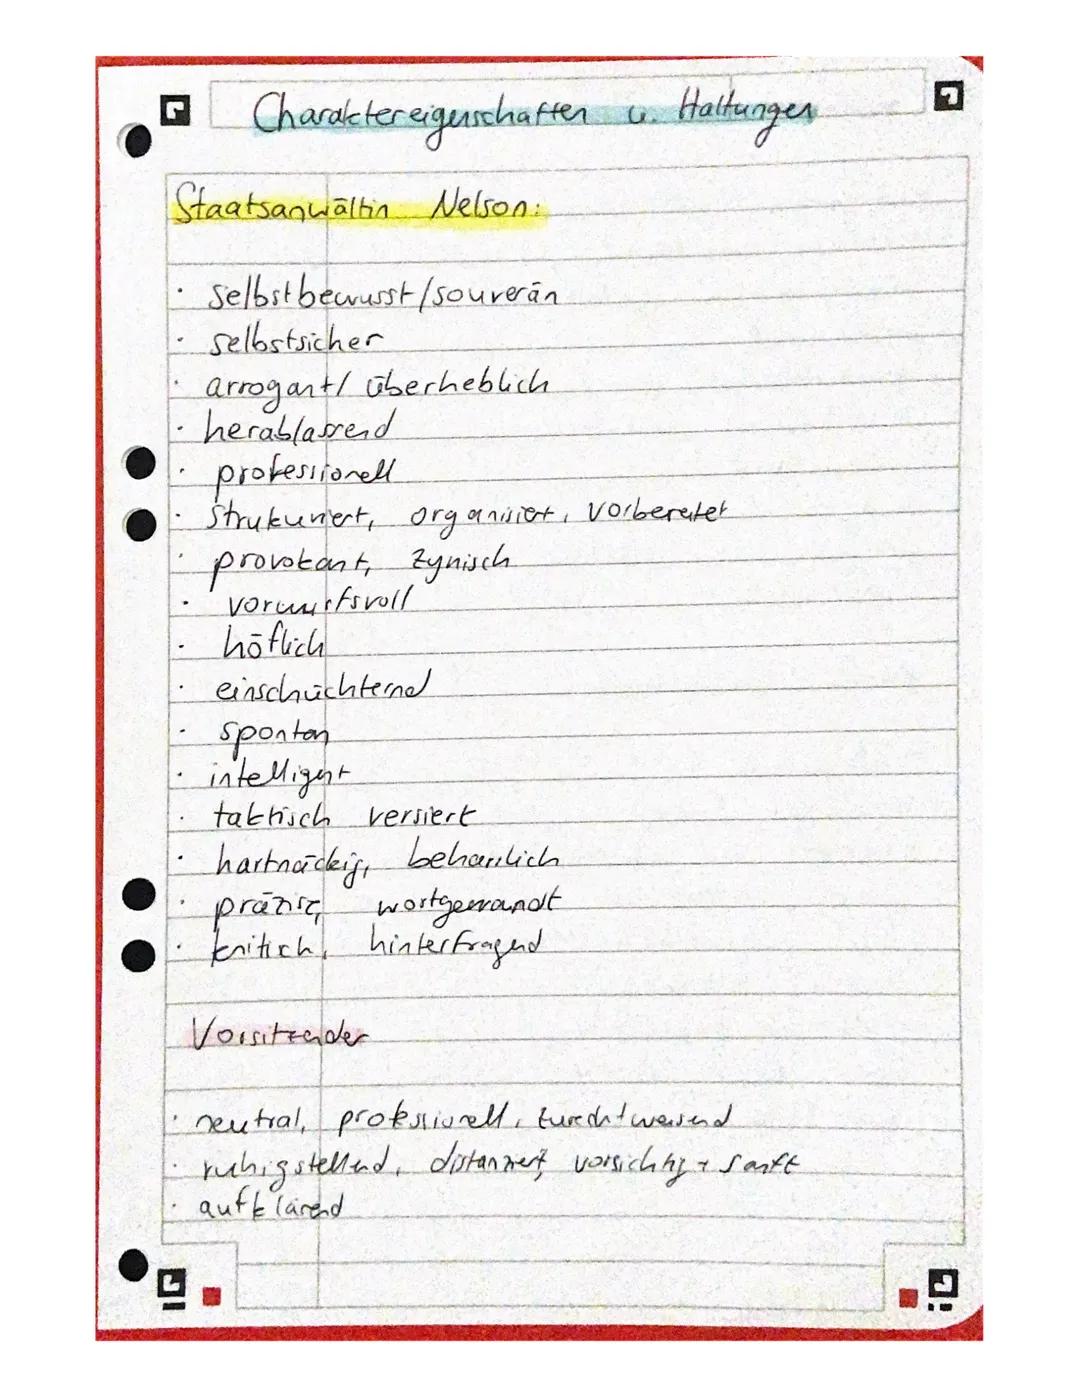 Charaktereigenschaften u. Haltungen
Staatsanwältin Nelson:
· selbstbewusst/souverän
· selbstsicher
· arrogant/ überheblich
· herablassend
· professionell
· Strukuriert, organisiert, vorbereitet
· provokant, zynisch
· vorwurfsvoll
· höflich
· einschüchternd
· spontan
· intelligent
· taktisch versiert
· hartnäckig, beharrlich
· präzise, wortgewandt
· kritisch, hinterfragend
Vorsitzender
· neutral, professionell, zurechtweisend
· ruhigstellend, distanziert, vorsichtig + sanft
· aufklärend